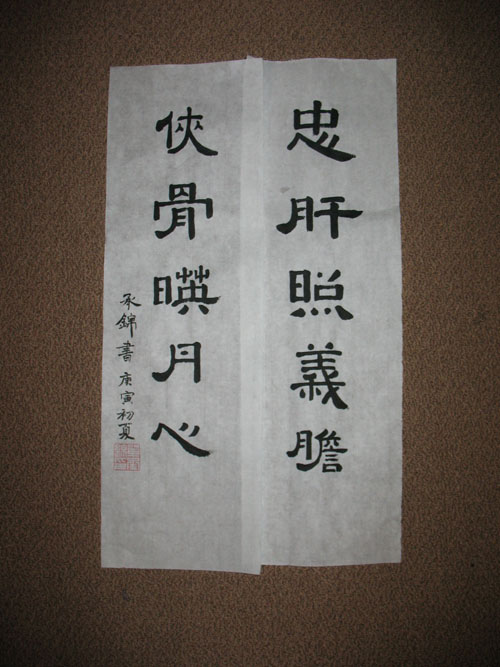 忠肝照義膽
俠骨暎月心
承錦書 庚寅初夏